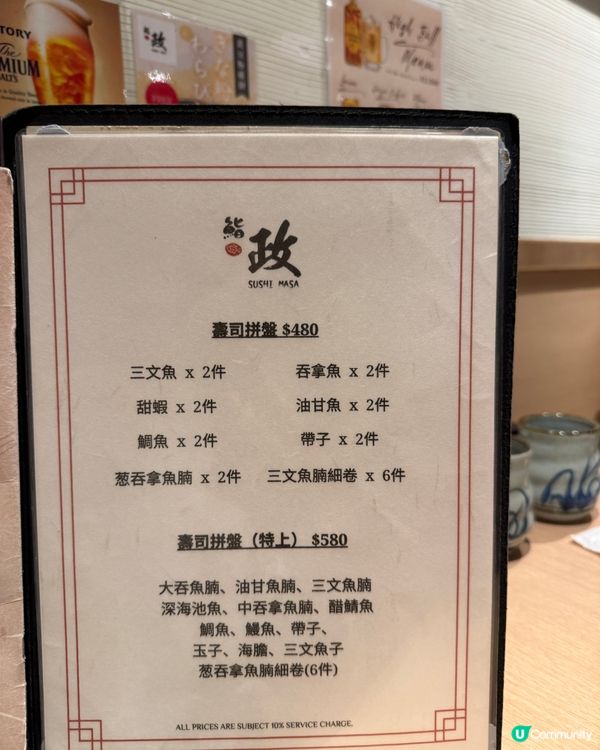 TORY
The
MIUM
MALT'S
政
わらび
High Ball
Menu
鮨 政
SUSHI MASA
壽司拼盤 $480
三文魚 x 2件 吞拿魚 x 2件
甜蝦 x 2件 油甘魚 x 2件
鯛魚 x 2件 帶子 x 2件
葱吞拿魚腩 x 2件 三文魚腩細卷 x 6件
壽司拼盤（特上） $580
大吞魚腩、油甘魚腩、三文魚腩
深海池魚、中吞拿魚腩、醋鯖魚
鯛魚、鰻魚、帶子、
玉子、海膽、三文魚子
葱吞拿魚腩細卷(6件)
ALL PRICES ARE SUBJECT 10% SERVICE CHARGE.
U Community